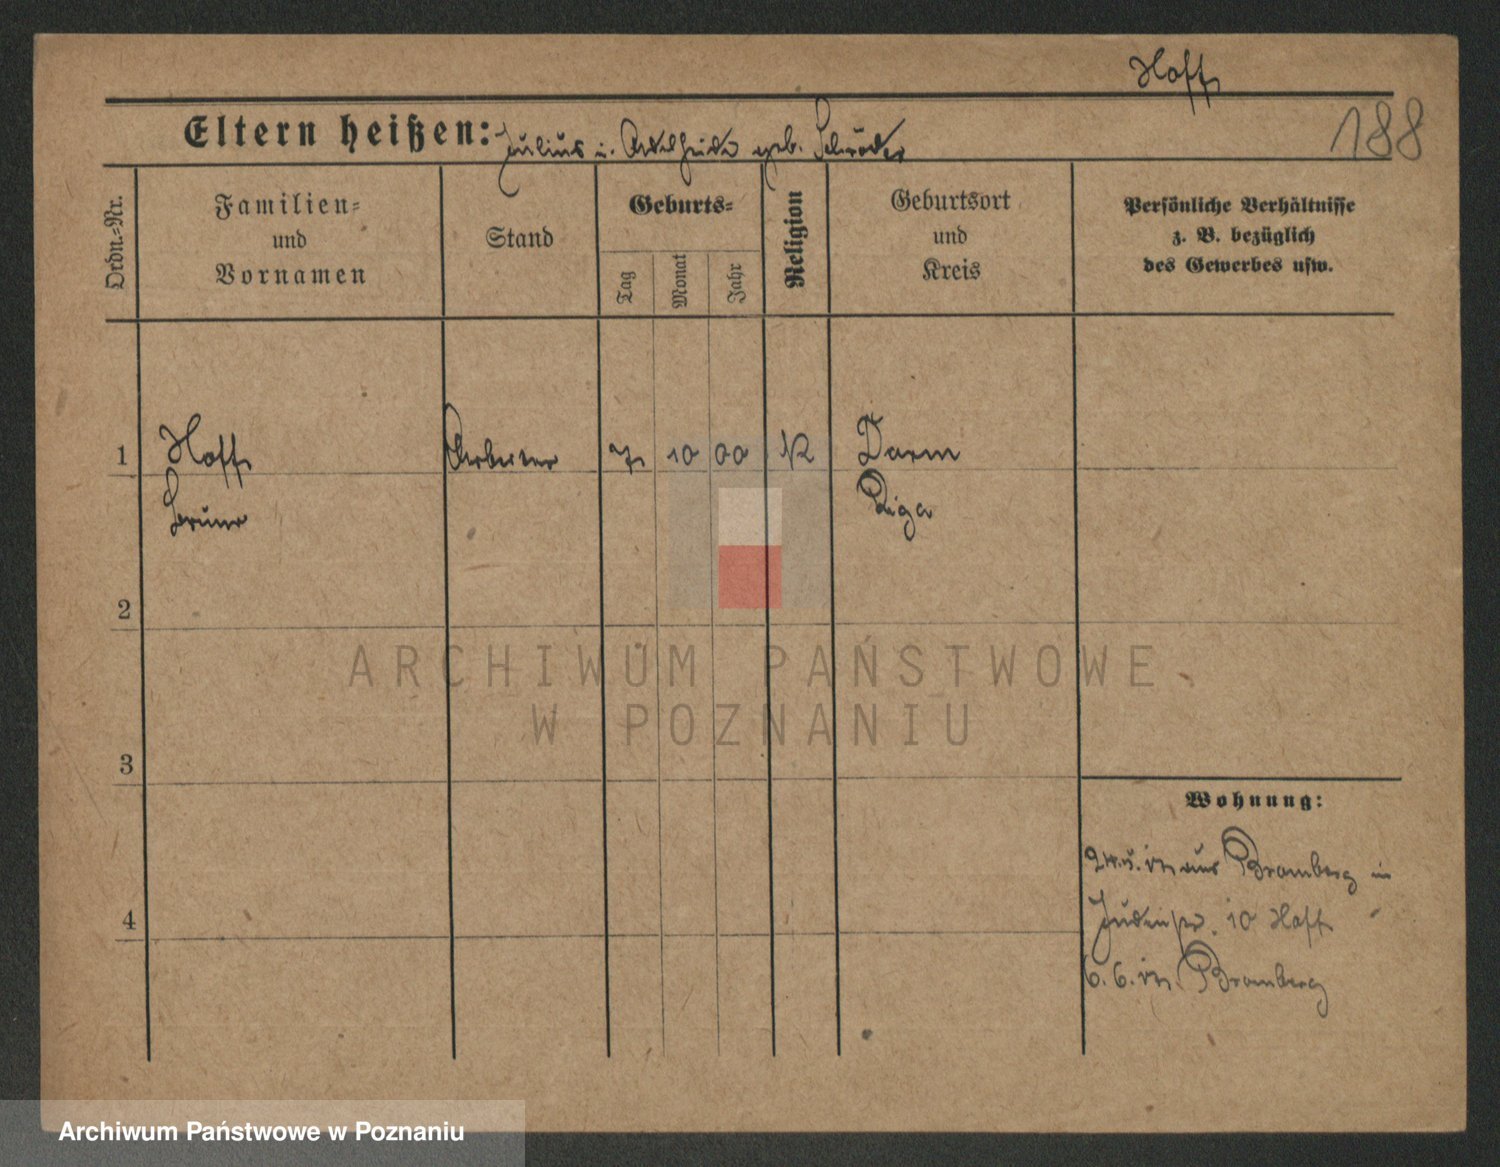 Hoff
188
Eltern heißen: Julius u. Adelheide geb. Schröder
Ordn.=Nr.
Familien=
und
Vornamen
Stand
Geburts=
Tag
Monat
Jahr
Religion
Geburtsort
und
Kreis
Persönliche Verhältnisse
z. B. bezüglich
des Gewerbes usw.
1
Hoff
Arbeiter
7
10
00
K
Darm
Bruno
Riga
2
ARCHIWUM PAŃSTWOWE
W POZNANIU
3
Wohnung:
aus Bromberg in
10 Hoff
4
6. 6. Bromberg
Archiwum Państwowe w Poznaniu